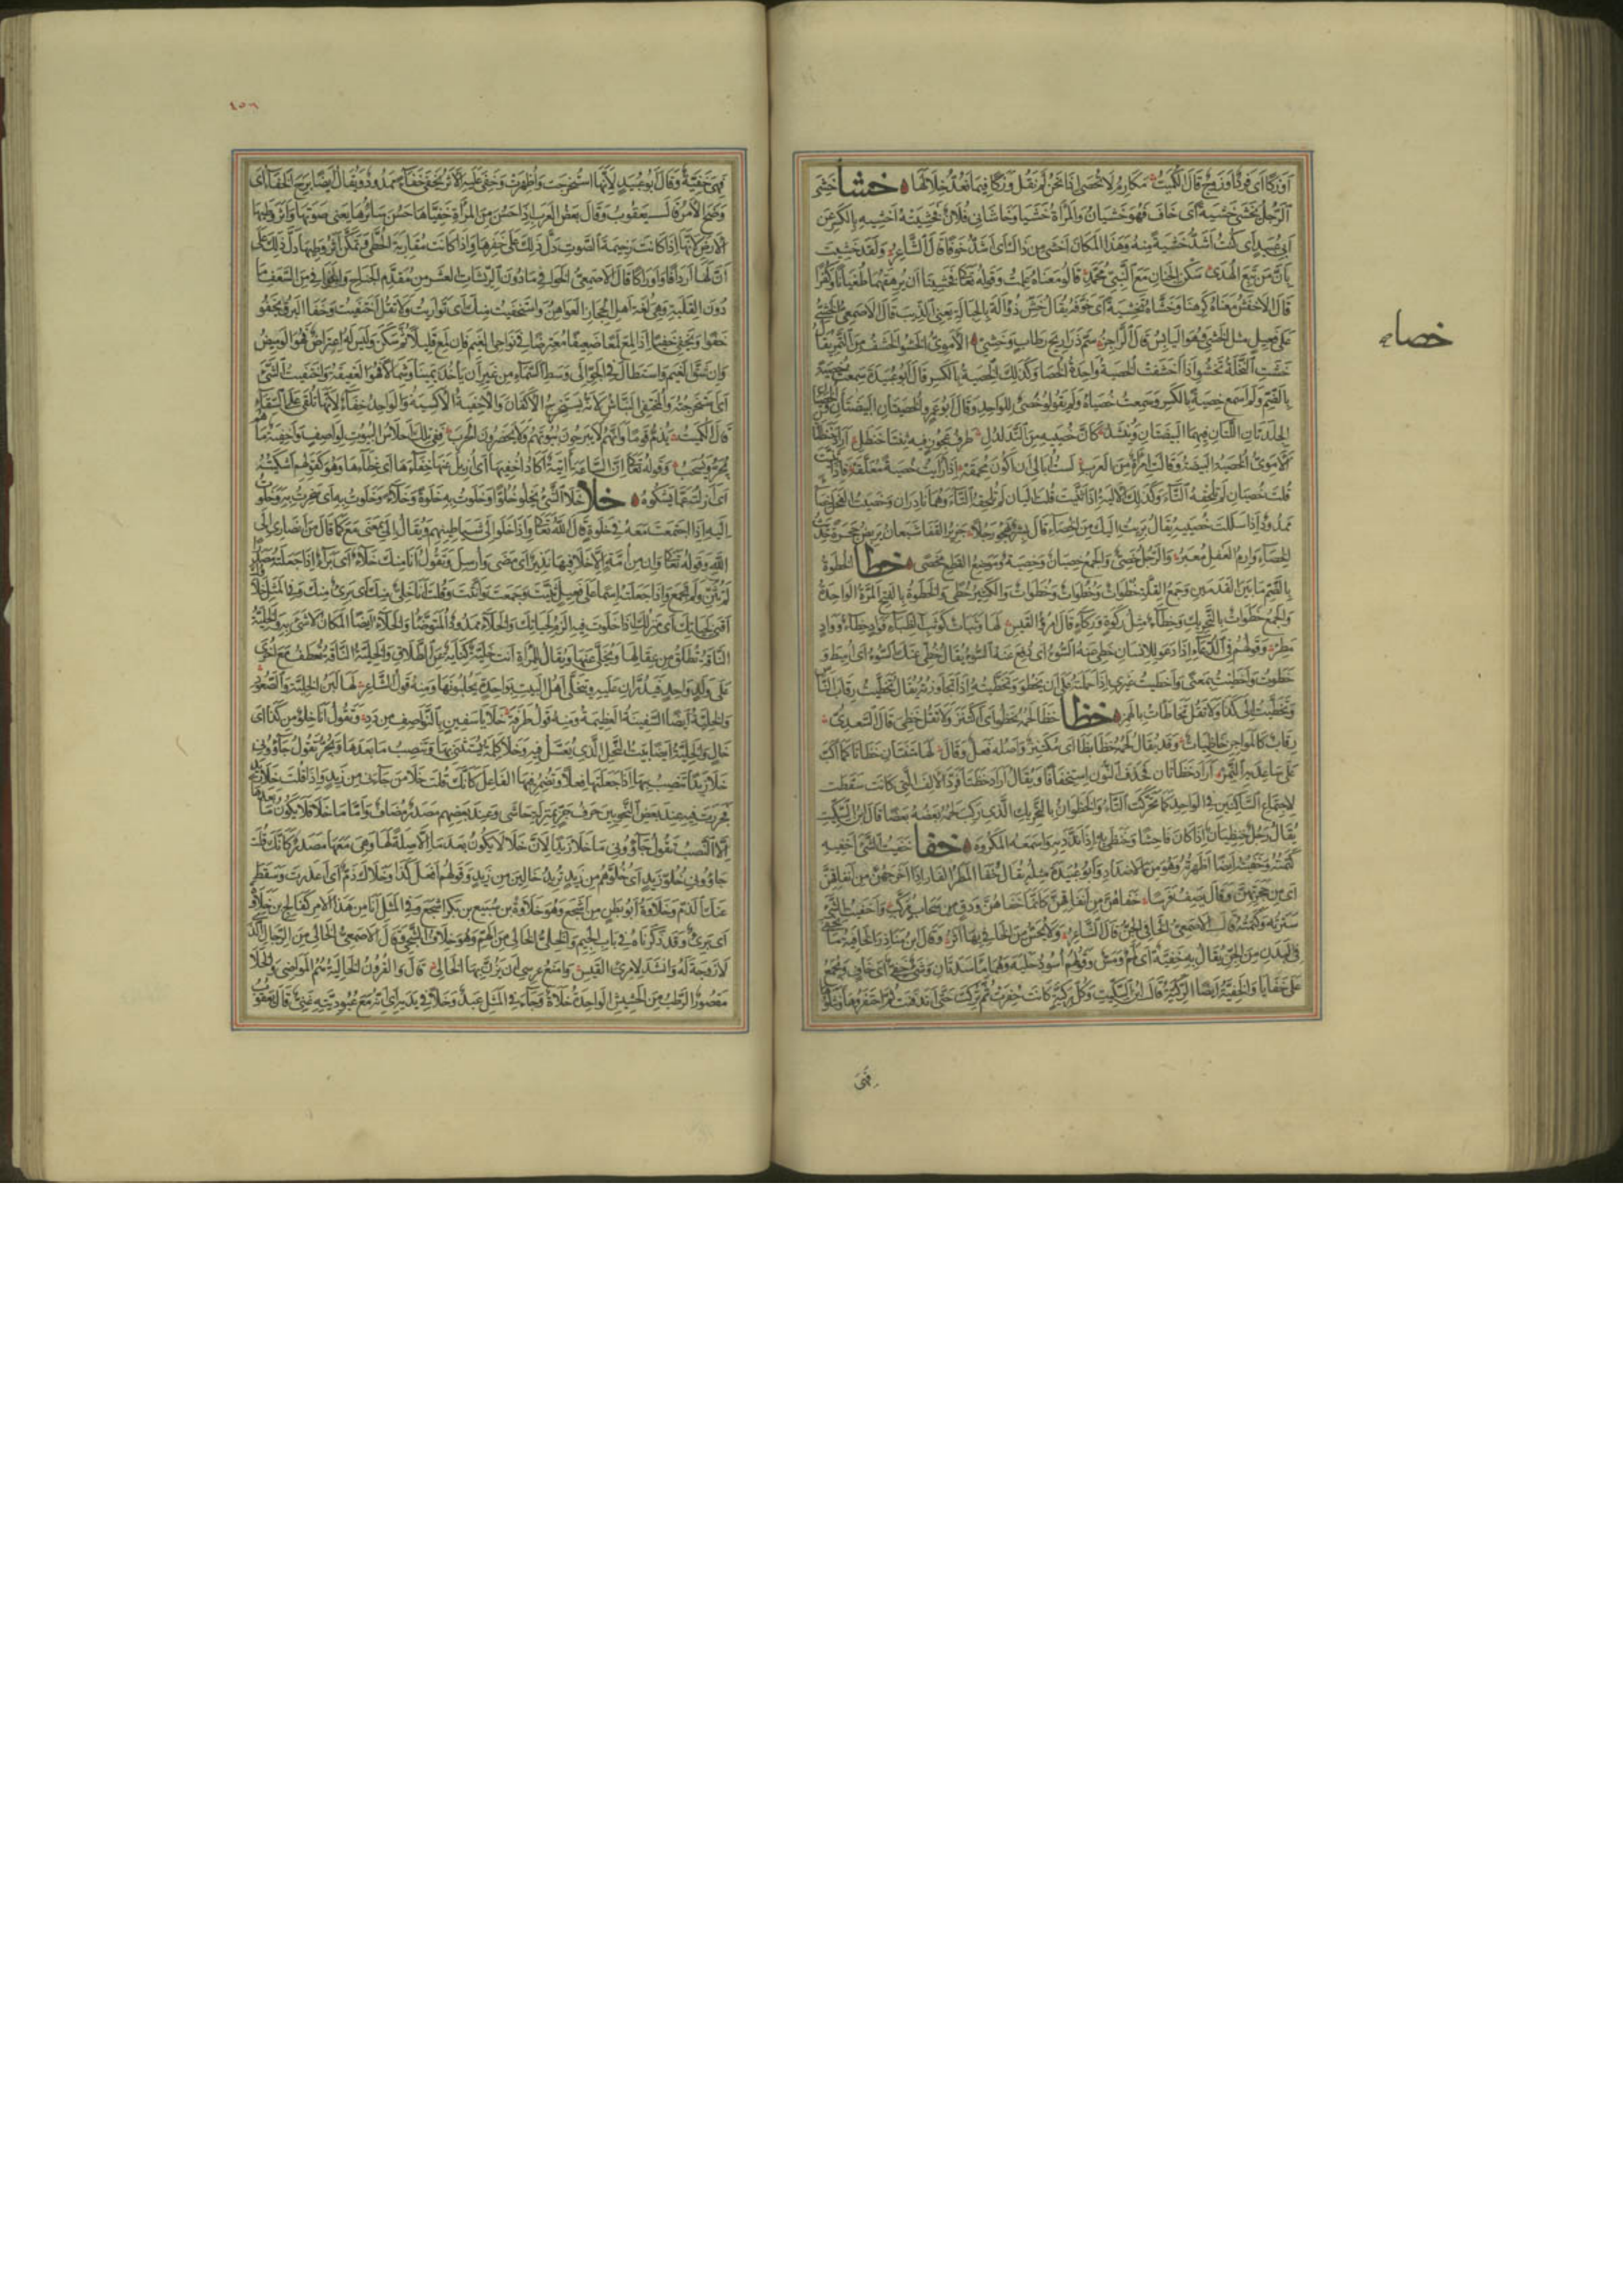 أو زكا أي فردا أو زوج قال الكميت مكارم لا تحصى إذا نحن لم نقل وزكا فيما نعد خلالها خشا خشي
الرجل يخشى خشية أي خاف فهو خشيان والمرأة خشيا وخاشاني فلان فخشيته أخشيه بالكسر عن
أبي عبيد أي كنت أشد خشية منه وهذا المكان أخشى من ذاك أي أشد خوفا قال الشاعر ولقد خشيت
بأن من تبع الهدى سكن الجنان مع النبي محمد قالوا معناه علمت وقوله تعالى فخشينا أن يرهقهما طغيانا وكفرا
قال الأخفش معناه كرهنا وخشاه تخشية أي خوفه يقال خش ذؤالة بالحبالة يعني الذئب قال الأصمعي الخشي
على فعيل مثل الحشي وهو اليابس قال الراجز سم ذراريح رطاب وخشي الأموي الخشو الحشف من التمر يقال
خشت النخلة تخشو إذا أحشفت الخصية واحدة الخصا وكذلك الخصية بالكسر قال أبو عبيدة سمعت خصية
بالضم ولم أسمع خصية بالكسر وسمعت خصياه ولم يقولوا خصي للواحد وقال أبو عمرو الخصيتان البيضتان والخصيان
الجلدتان اللتان فيهما البيضتان وينشد كأن خصييه من التدلدل ظرف عجوز فيه ثنتا حنظل أراد حنظلتان
الأموي الخصية البيضة وقالت امرأة من العرب لست أبالي أن أكون محمقه إذا رأيت خصية معلقه فإذا ثنيت
قلت خصيان لم تلحقه التاء وكذلك الألية إذا ثنيت قلت أليان لم تلحقه التاء وهما نادران وخصيت الفحل خصاء
ممدود إذا سللت خصييه يقال برئت إليك من الخصاء قال بشر يهجو رجلا جزيز القفا شبعان يربض حجرة حديث
الخصاء وارم العفل معبر والرجل خصي والجمع خصيان وخصية وموضع القطع مخصى خطا الخطوة
بالضم ما بين القدمين وجمع القلة خطوات وخطوات وخطوات والكثير خطى والخطوة بالفتح المرة الواحدة
والجمع خطوات بالتحريك وخطاء مثل ركوة وركاء قال امرؤ القيس لها وثبات كوثب الظباء فواد خطاء وواد
مطر وقولهم في الدعاء إذا دعوا للإنسان خطي عنه السوء أي دفع عنه السوء يقال خطي عنك السوء أي أميط و
خطوت واختطيت بمعنى وأخطيت غيري إذا حملته على أن يخطو وتخطيته إذا تجاوزته يقال تخطيت رقاب الناس
وتخطيت إلى كذا ولا تقل تخطأت بالهمز خظا خظا لحمه يخظو أي اكتنز ولا تقل خظي قال السعدي
رقاب كالمواجن خاظيات وقد يقال لحمه خظا بظا أي مكتنز وأصله فعل وقال لها متنتان خظاتا كما أكب
على ساعديه النمر أراد خظاتان فحذف النون استخفافا ويقال أراد خظتا فرد الألف التي كانت سقطت
لاجتماع الساكنين في الواحد لما تحركت التاء والخظوان بالتحريك الذي ركب لحمه بعضه بعضا قال ابن السكيت
يقال رجل خنظيان إذا كان فاحشا وخنظى به إذا ندد به وأسمعه المكروه خفا خفيت الشيء أخفيه
كتمته وخفيته أيضا أظهرته وهو من الأضداد وأبو عبيدة مثله يقال خفا المطر الفار إذا أخرجهن من أنفاقهن
أي من جحرتهن وقال يصف فرسا خفاهن من أنفاقهن كأنما خفاهن ودق من سحاب مركب وأخفيت الشيء
سترته وكتمته قال الأصمعي الخافي الجن قال الشاعر ولا يحس من الخافي بها أثر وقال ابن مناذر الخافية ما يخفى
في البدن من الجن يقال به خفية أي لمم ومس وقولهم أسود خفية وهما مأسدتان وشيء خفي أي خاف ويجمع
على خفايا والخفية أيضا الركية قال ابن السكيت وكل ركية كانت حفرت ثم تركت حتى اندفنت ثم احتفروها ونثلوها
خصاء
فهي
١٥٦
فهي خفية وقال أبو عبيد لأنها استخرجت وأظهرت وخفي عليه الأمر يخفى خفاء ممدود ويقال أيضا برح الخفاء أي
وضح الأمر قال يعقوب وقال بعض العرب إذا حسن من المرأة خفياها حسن سائرها يعني صوتها وأثر وطئها
الأرض لأنها إذا كانت رخيمة الصوت دل ذلك على خفرها وإذا كانت مقاربة الخطى وتمكن أثر وطئها دل ذلك على
أن لها أردافا وأوراكا قال الأصمعي الخوافي ما دون الريشات العشر من مقدم الجناح والخوافي من السعف ما
دون القلبة وهي لغة أهل الحجاز العواهن واستخفيت منك أي تواريت ولا تقل اختفيت وخفا البرق يخفو
خفوا ويخفي خفيا إذا لمع لمعا ضعيفا معترضا في نواحي الغيم فإن لمع قليلا ثم سكن وليس له اعتراض فهو الوميض
وإن شق الغيم واستطال في الجو إلى وسط السماء من غير أن يأخذ يمينا وشمالا فهو العقيقة واختفيت الشيء
أي استخرجته والمختفي النباش لأنه يستخرج الأكفان والأخفية الأكسية والواحد خفاء لأنها تلقى على السقاء
قال الكميت يذم قوما وأنهم لا يبرحون بيوتهم ولا يحضرون الحرب ففي تلك أحلاس البيوت لواصف وأخفية ما هم
تجر وتسحب وقوله تعالى إن الساعة آتية أكاد أخفيها أي أزيل عنها خفاءها أي غطاءها وهو كقولهم أشكيته
أي أزلته عما يشكوه خلا خلا الشيء يخلو خلوا وخلوت به خلوة وخلاء وخلوت به أي سخرت به وخلوت
إليه إذا اجتمعت معه في خلوة قال الله تعالى وإذا خلوا إلى شياطينهم ويقال إلى بمعنى مع كما قال من أنصاري إلى
الله وقوله تعالى وإن من أمة إلا خلا فيها نذير أي مضى وأرسل وتقول أنا منك خلاء أي براء إذا جعلته مصدرا
لم تثن ولم تجمع وإذا جعلته اسما على فعيل ثنيت وجمعت وأنثت وقلت أنا خلي منك أي بريء منك وفي المثل خلاؤك
أقنى لحيائك أي منزلك إذا خلوت فيه ألزم لحيائك والخلاء ممدود المتوضأ والخلاء أيضا المكان لا شيء به والخلية
الناقة تطلق من عقالها ويخلى عنها ويقال للمرأة أنت خلية كناية عن الطلاق والخلية الناقة تعطف مع أخرى
على ولد واحد فتدران عليه ويتخلى أهل البيت بواحدة يحلبونها ومنه قول الشاعر لها لبن الخلية والصعود
والخلية أيضا السفينة العظيمة ومنه قول طرفة خلايا سفين بالنواصف من دد وتقول أنا خلو من كذا أي
خال والخلية أيضا بيت النحل الذي تعسل فيه وخلا كلمة يستثنى بها وتنصب ما بعدها وتجر تقول جاؤوني
خلا زيدا تنصب بها إذا جعلتها فعلا وتضمر فيها الفاعل كأنك قلت خلا من جاءني من زيد وإذا قلت خلا زيد
فجررت فهو عند بعض النحويين حرف جر بمنزلة حاشى وعند بعضهم مصدر مضاف وأما ما خلا فلا يكون بعدها
إلا النصب تقول جاؤوني ما خلا زيدا لأن خلا لا يكون بعد ما إلا صلة لها وهي معها مصدر كأنك قلت
جاؤوني خلو زيد أي خلوهم من زيد تريد خالين من زيد وقولهم افعل كذا وخلاك ذم أي أعذرت وسقط
عنك الذم وخلاوة أبو بطن من أشجع وهو خلاوة بن سبيع بن بكر بن أشجع وفي المثل أنا من هذا الأمر كفالج بن خلاوة
أي بريء وقد ذكرناه في باب الجيم والخلي الخالي من الهم وهو خلاف الشجي وقال الأصمعي الخالي من الرجال الذي
لا زوجة له وأنشد لامرئ القيس وأمنع عرسي أن يزن بها الخالي قال والقرون الخالية هم المواضي والخلا
مقصور الرطب من الحشيش الواحدة خلاة وجاء في المثل عبد وخلا في يديه أي أنه مع عبوديته غني قال يعقوب